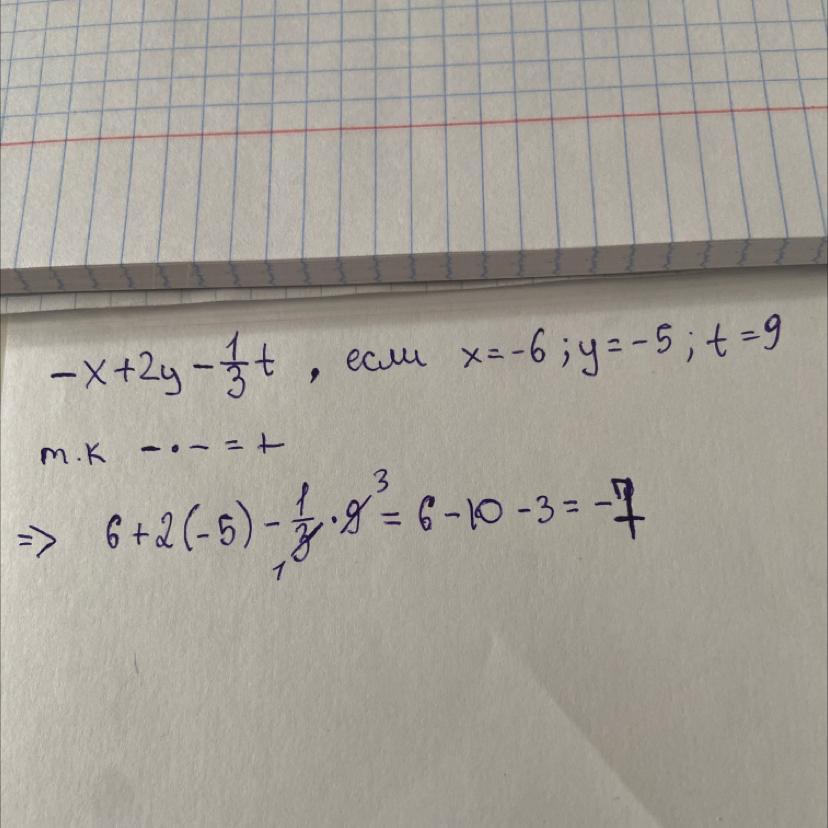 -x+2y-1/3t, если x=-6;y=-5;t=9
т.к -·-=+
=> 6+2(-5)-1/3 1·9 3=6-10-3=-7